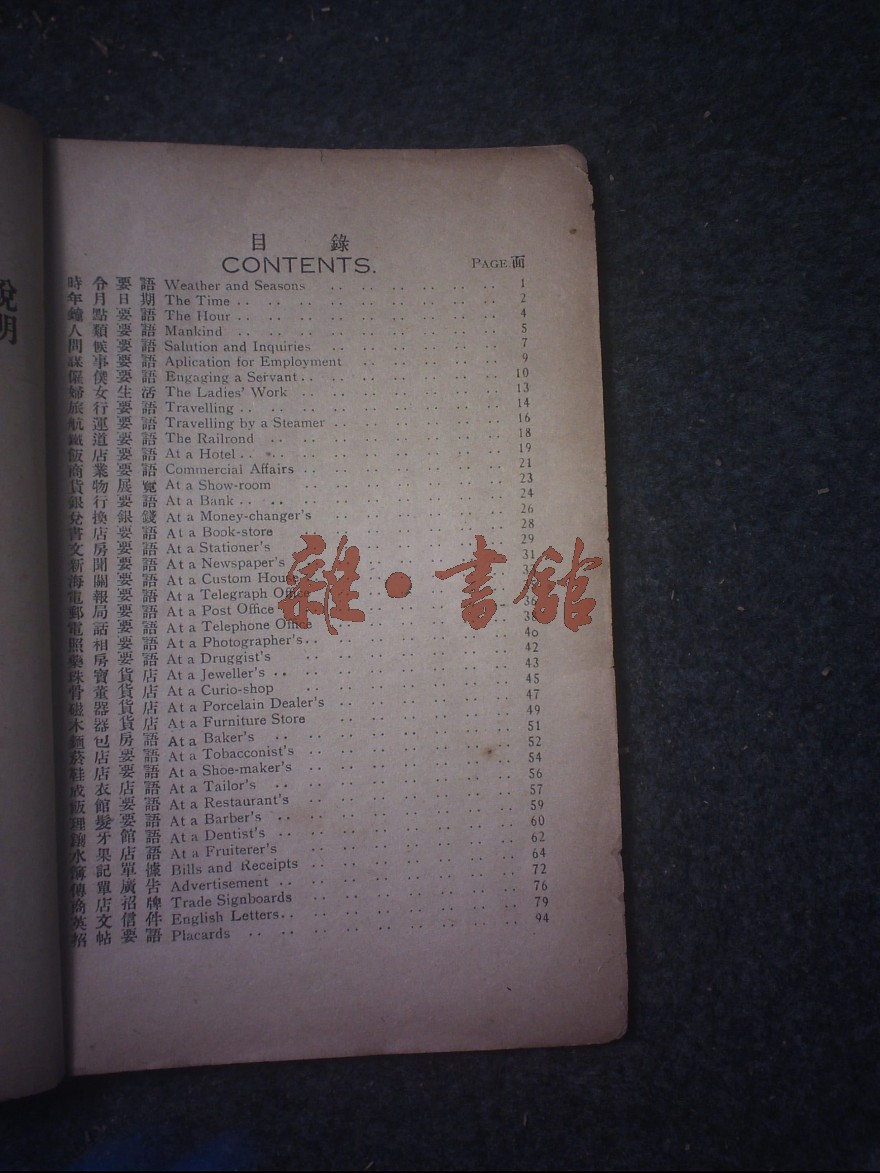 說明
目錄
CONTENTS.
PAGE.面
時令要語 Weather and Seasons 1
年月日期 The Time 2
鐘點要語 The Hour 4
人類要語 Mankind 5
問候要語 Salution and Inquiries 7
謀事要語 Aplication for Employment 9
僱僕要語 Engaging a Servant 10
婦女生活 The Ladies' Work 13
旅行要語 Travelling 14
航運要語 Travelling by a Steamer 16
鐵道要語 The Railrond 18
飯店要語 At a Hotel 19
商業要語 Commercial Affairs 21
貨物展覽 At a Show-room 23
銀行要語 At a Bank 24
兌換銀錢 At a Money-changer's 26
書店要語 At a Book-store 28
文房要語 At a Stationer's 29
新聞要語 At a Newspaper's 31
海關要語 At a Custom House
電報要語 At a Telegraph Office
郵局要語 At a Post Office 36
電話要語 At a Telephone Office 38
照相要語 At a Photographer's 40
藥房要語 At a Druggist's 42
珠寶貨店 At a Jeweller's 43
骨董貨店 At a Curio-shop 45
磁器貨店 At a Porcelain Dealer's 47
木器貨店 At a Furniture Store 49
麵包房語 At a Baker's 51
菸店要語 At a Tobacconist's 52
鞋店要語 At a Shoe-maker's 54
成衣店語 At a Tailor's 56
飯館要語 At a Restaurant's 57
理髮要語 At a Barber's 59
鑲牙館語 At a Dentist's 60
水果店語 At a Fruiterer's 62
簿記單據 Bills and Receipts 64
傳單廣告 Advertisement 72
商店招牌 Trade Signboards 76
英文信件 English Letters 79
招帖要語 Placards 94
雜·書館